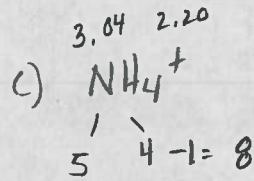 3.04 2.20
c) NH4+
5 4 -1= 8